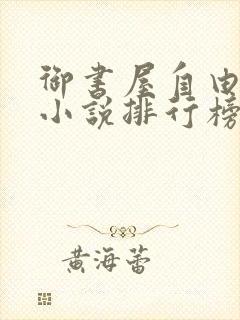 御书屋自由
小说排行榜
黄海蕾